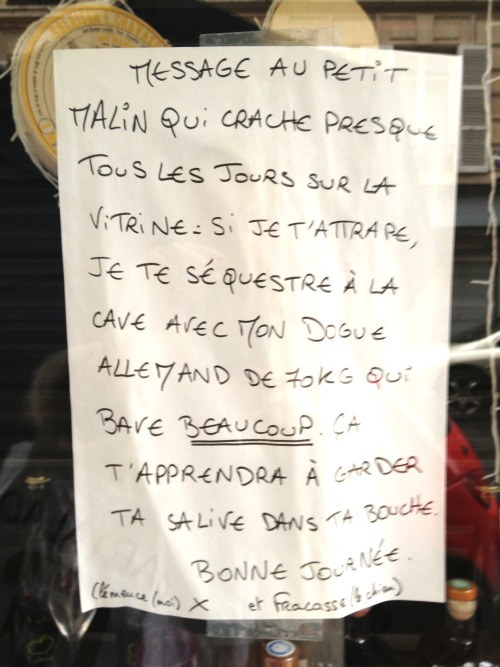 MESSAGE AU PETIT
MALIN QUI CRACHE PRESQUE
TOUS LES JOURS SUR LA
VITRINE : SI JE T'ATTRAPE,
JE TE SÉQUESTRE À LA
CAVE AVEC MON DOGUE
ALLEMAND DE 70KG QUI
BAVE BEAUCOUP. CA
T'APPRENDRA À GARDER
TA SALIVE DANS TA BOUCHE.
BONNE JOURNÉE.
Clémence (moi) X et Fracasse (le chien)